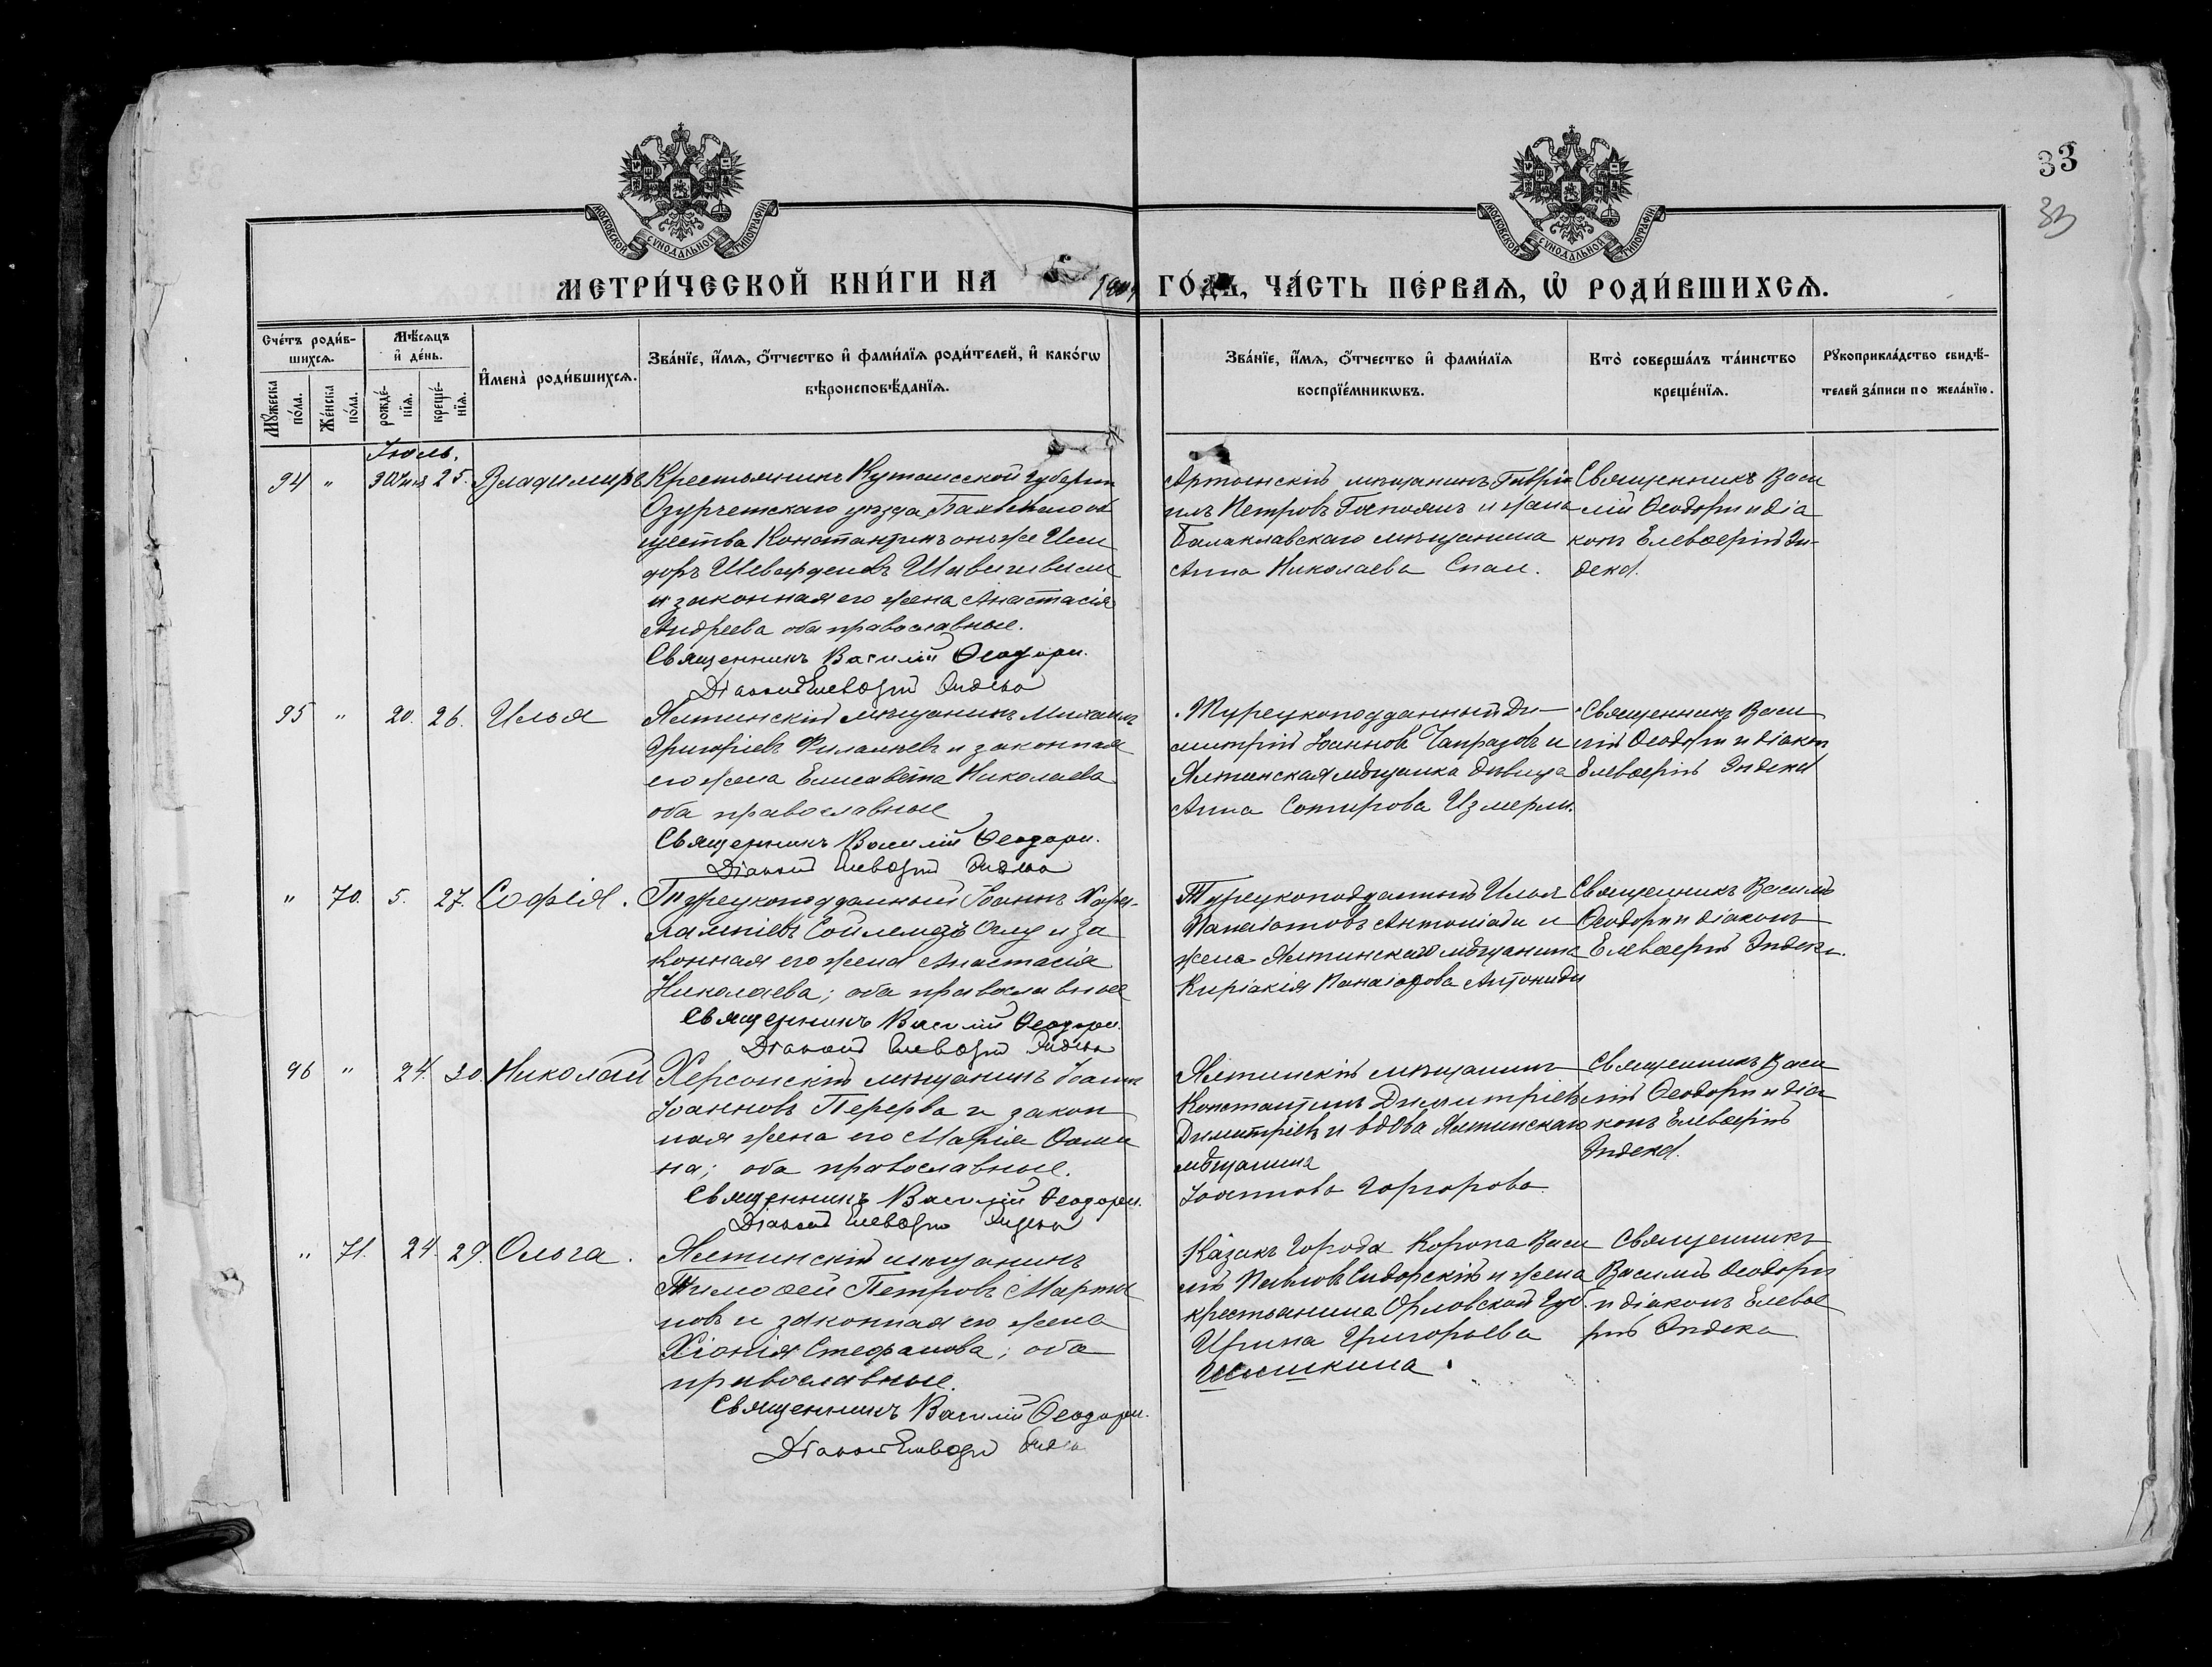 33
33
МОСКОВСКОЙ СѴНОДАЛЬНОЙ ТИПОГРАФІИ
МОСКОВСКОЙ СѴНОДАЛЬНОЙ ТИПОГРАФІИ
МЕТРИ́ЧЕСКОЙ КНИ́ГИ НА ГО́ДЪ, ЧА́СТЬ ПЕ́РВАѦ, Ѡ҆ РОДИ́ВШИХСѦ.
Сче́тъ роди́в-
шихсѧ.
Мꙋ́жеска по́ла.
Же́нска по́ла.
Мѣ́сѧцъ
и҆ де́нь.
рожде́-
нїѧ.
креще́-
нїѧ.
И҆мена̀ роди́вшихсѧ.
Зва́нїе, и҆́мѧ, ѻ҆́тчество и҆ фами́лїѧ роди́телей, и҆ како́гѡ
вѣроисповѣ́данїѧ.
Зва́нїе, и҆́мѧ, ѻ҆́тчество и҆ фами́лїѧ
воспрїе́мникѡвъ.
Кто̀ соверша́лъ та́инство
креще́нїѧ.
Рꙋкоприкла́дство свидѣ́-
телей за́писи по жела́нїю.
Іюль.
94 " 25. Владимиръ
Крестьянинъ Кутаисской губерніи
Озургетскаго уѣзда об
щества Константинъ онъ же Иси
доръ
и законная его жена Анастасія
Андреева оба православные.
Священникъ Василій Ѳеодори.
Діаконъ Елевѳерій Эндека
мѣщанинъ Гавріи
илъ Петровъ и жена
Балаклавскаго мѣщанина
Анна Николаева Спаи.
Священникъ Васи
лій Ѳеодори и діа
конъ Елевѳерій Эн-
дека.
95 " 20. 26. Илья
Ялтинскій мѣщанинъ Михаилъ
и законная
его жена Елисавета Николаева
оба православные
Священникъ Василій Ѳеодори.
Діаконъ Елевѳерій Эндека
Турецкоподданный Ди-
митрій Іоанновъ Чапразовъ и
Ялтинская мѣщанка дѣвица
Анна Сотирова Измерли.
Священникъ Васи
лій Ѳеодори и діакон
Елевѳерій Эндека
" 70. 5. 27. Софія.
Турецкоподданный Іоаннъ Хара-
лампіевъ Сойлемезъ Оглу и за
конная его жена Анастасія
Николаева; оба православные
Священникъ Василій Ѳеодори.
Діаконъ Елевѳерій Эндека
Турецкоподданный Илья
Панаіотовъ Антоніади и
жена Ялтинскаго мѣщанина
Киріакія Панаіотова Антониади
Священникъ Василій
Ѳеодори и діаконъ
Елевѳерій Эндека.
96 " 24. 30. Николай
Херсонскій мѣщанинъ Іоаннъ
Іоанновъ Перерва и закон
ная жена его Марія Ѳоми
на; оба православные.
Священникъ Василій Ѳеодори.
Діаконъ Елевѳерій Эндека
Ялтинскій мѣщанинъ
Константинъ Димитріевъ
Димитріевъ и вдова Ялтинскаго
мѣщанина
Іоаннова Горгорова.
Священникъ Васи
лій Ѳеодори и діа
конъ Елевѳерій
Эндека.
" 71. 24. 29. Ольга.
Ялтинскій мѣщанинъ
Тимоѳей Петровъ Марты
новъ и законная его жена
Хіонія Стефанова; оба
православные.
Священникъ Василій Ѳеодори.
Діаконъ Елевѳерій Эндека
Казакъ города Коропа Васи
лій Павловъ Сидорскій и жена
крестьянина Орловской губ.
Ирина Григорьева
Шишкина.
Священникъ
Василій Ѳеодори
и діаконъ Елевѳе
рій Эндека